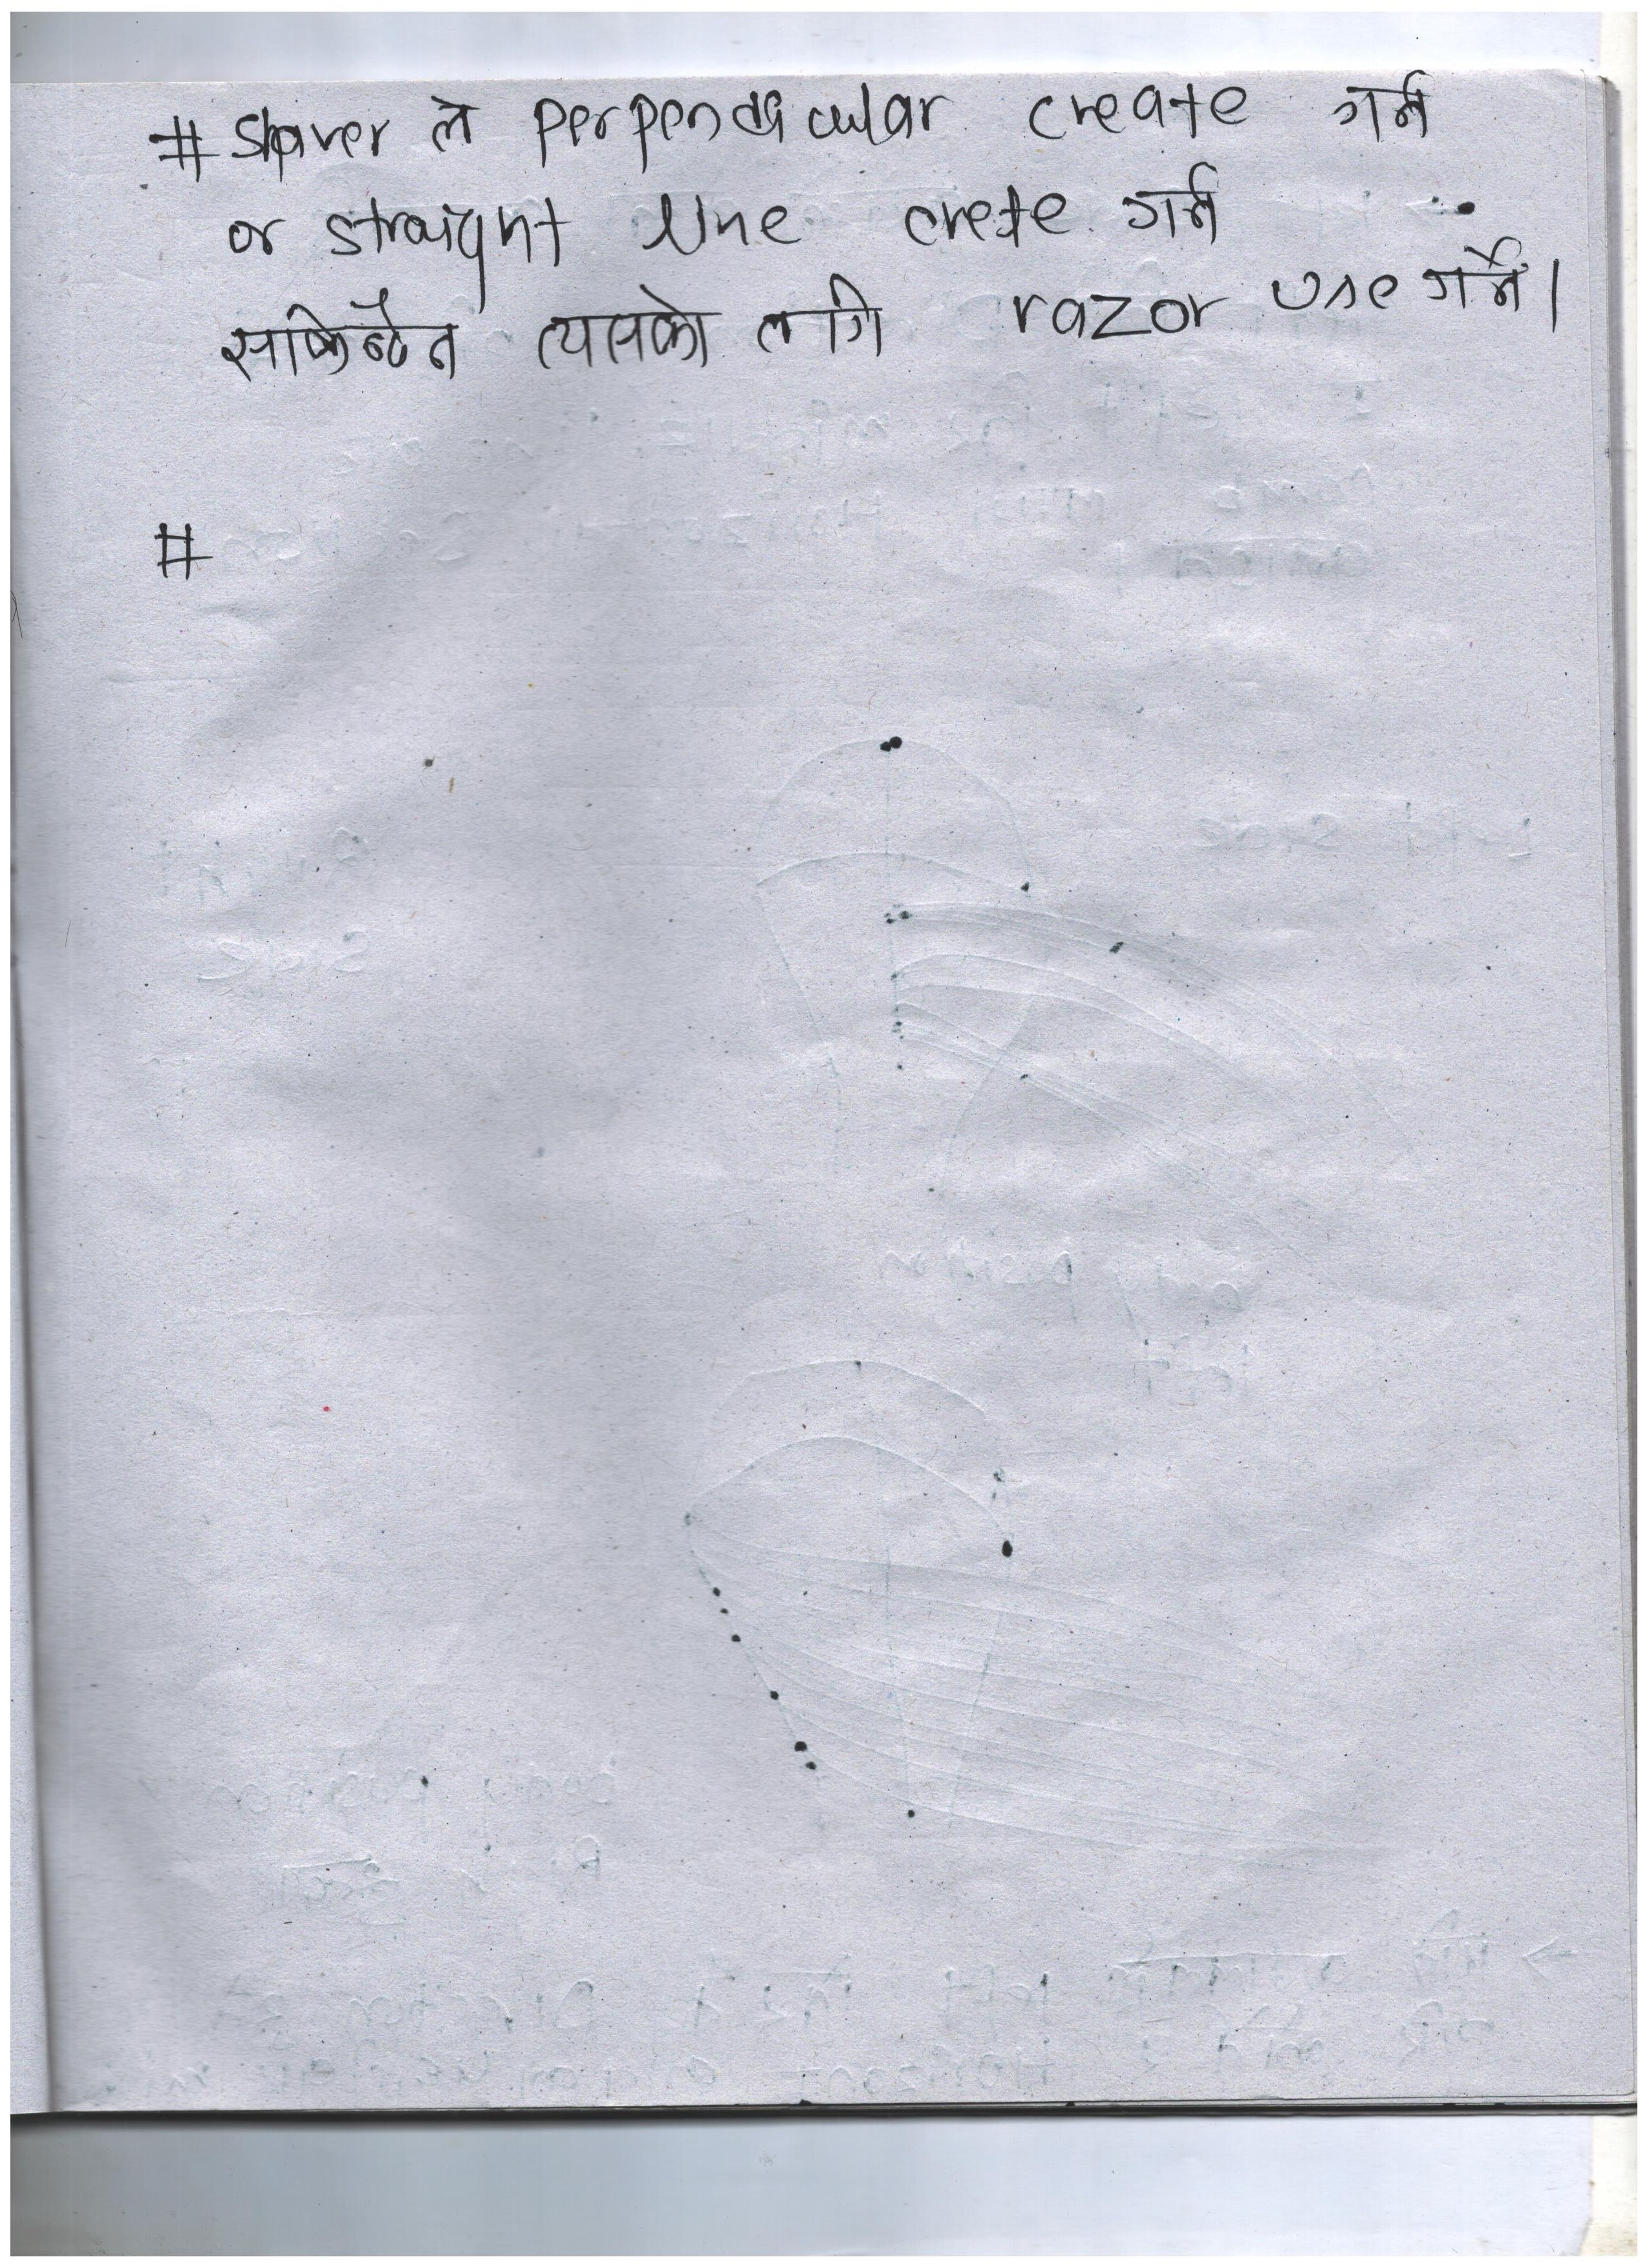 # Shaver ले perpendicular create गर्न
or straight line crete गर्न
सकिन्दैन त्यसको लागि razor use गर्ने।
#